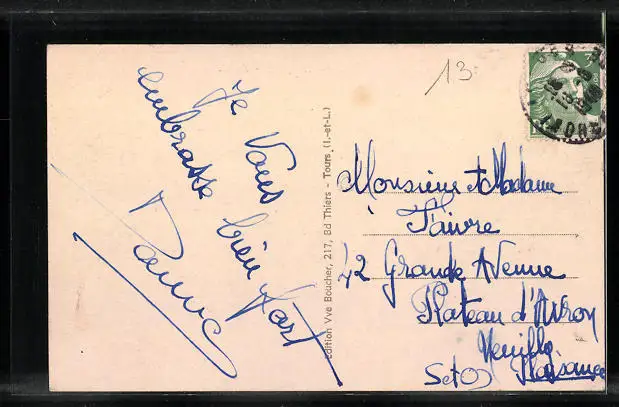 13
Je Vous
embrasse bien fort
Edition Vve Boucher, 217, Bd Thiers - Tours (I.-et-L.)
Monsieur et Madame
Faivre
42 Grande Avenue
Plateau d'Avron
Neuilly
Plaisance
Set O